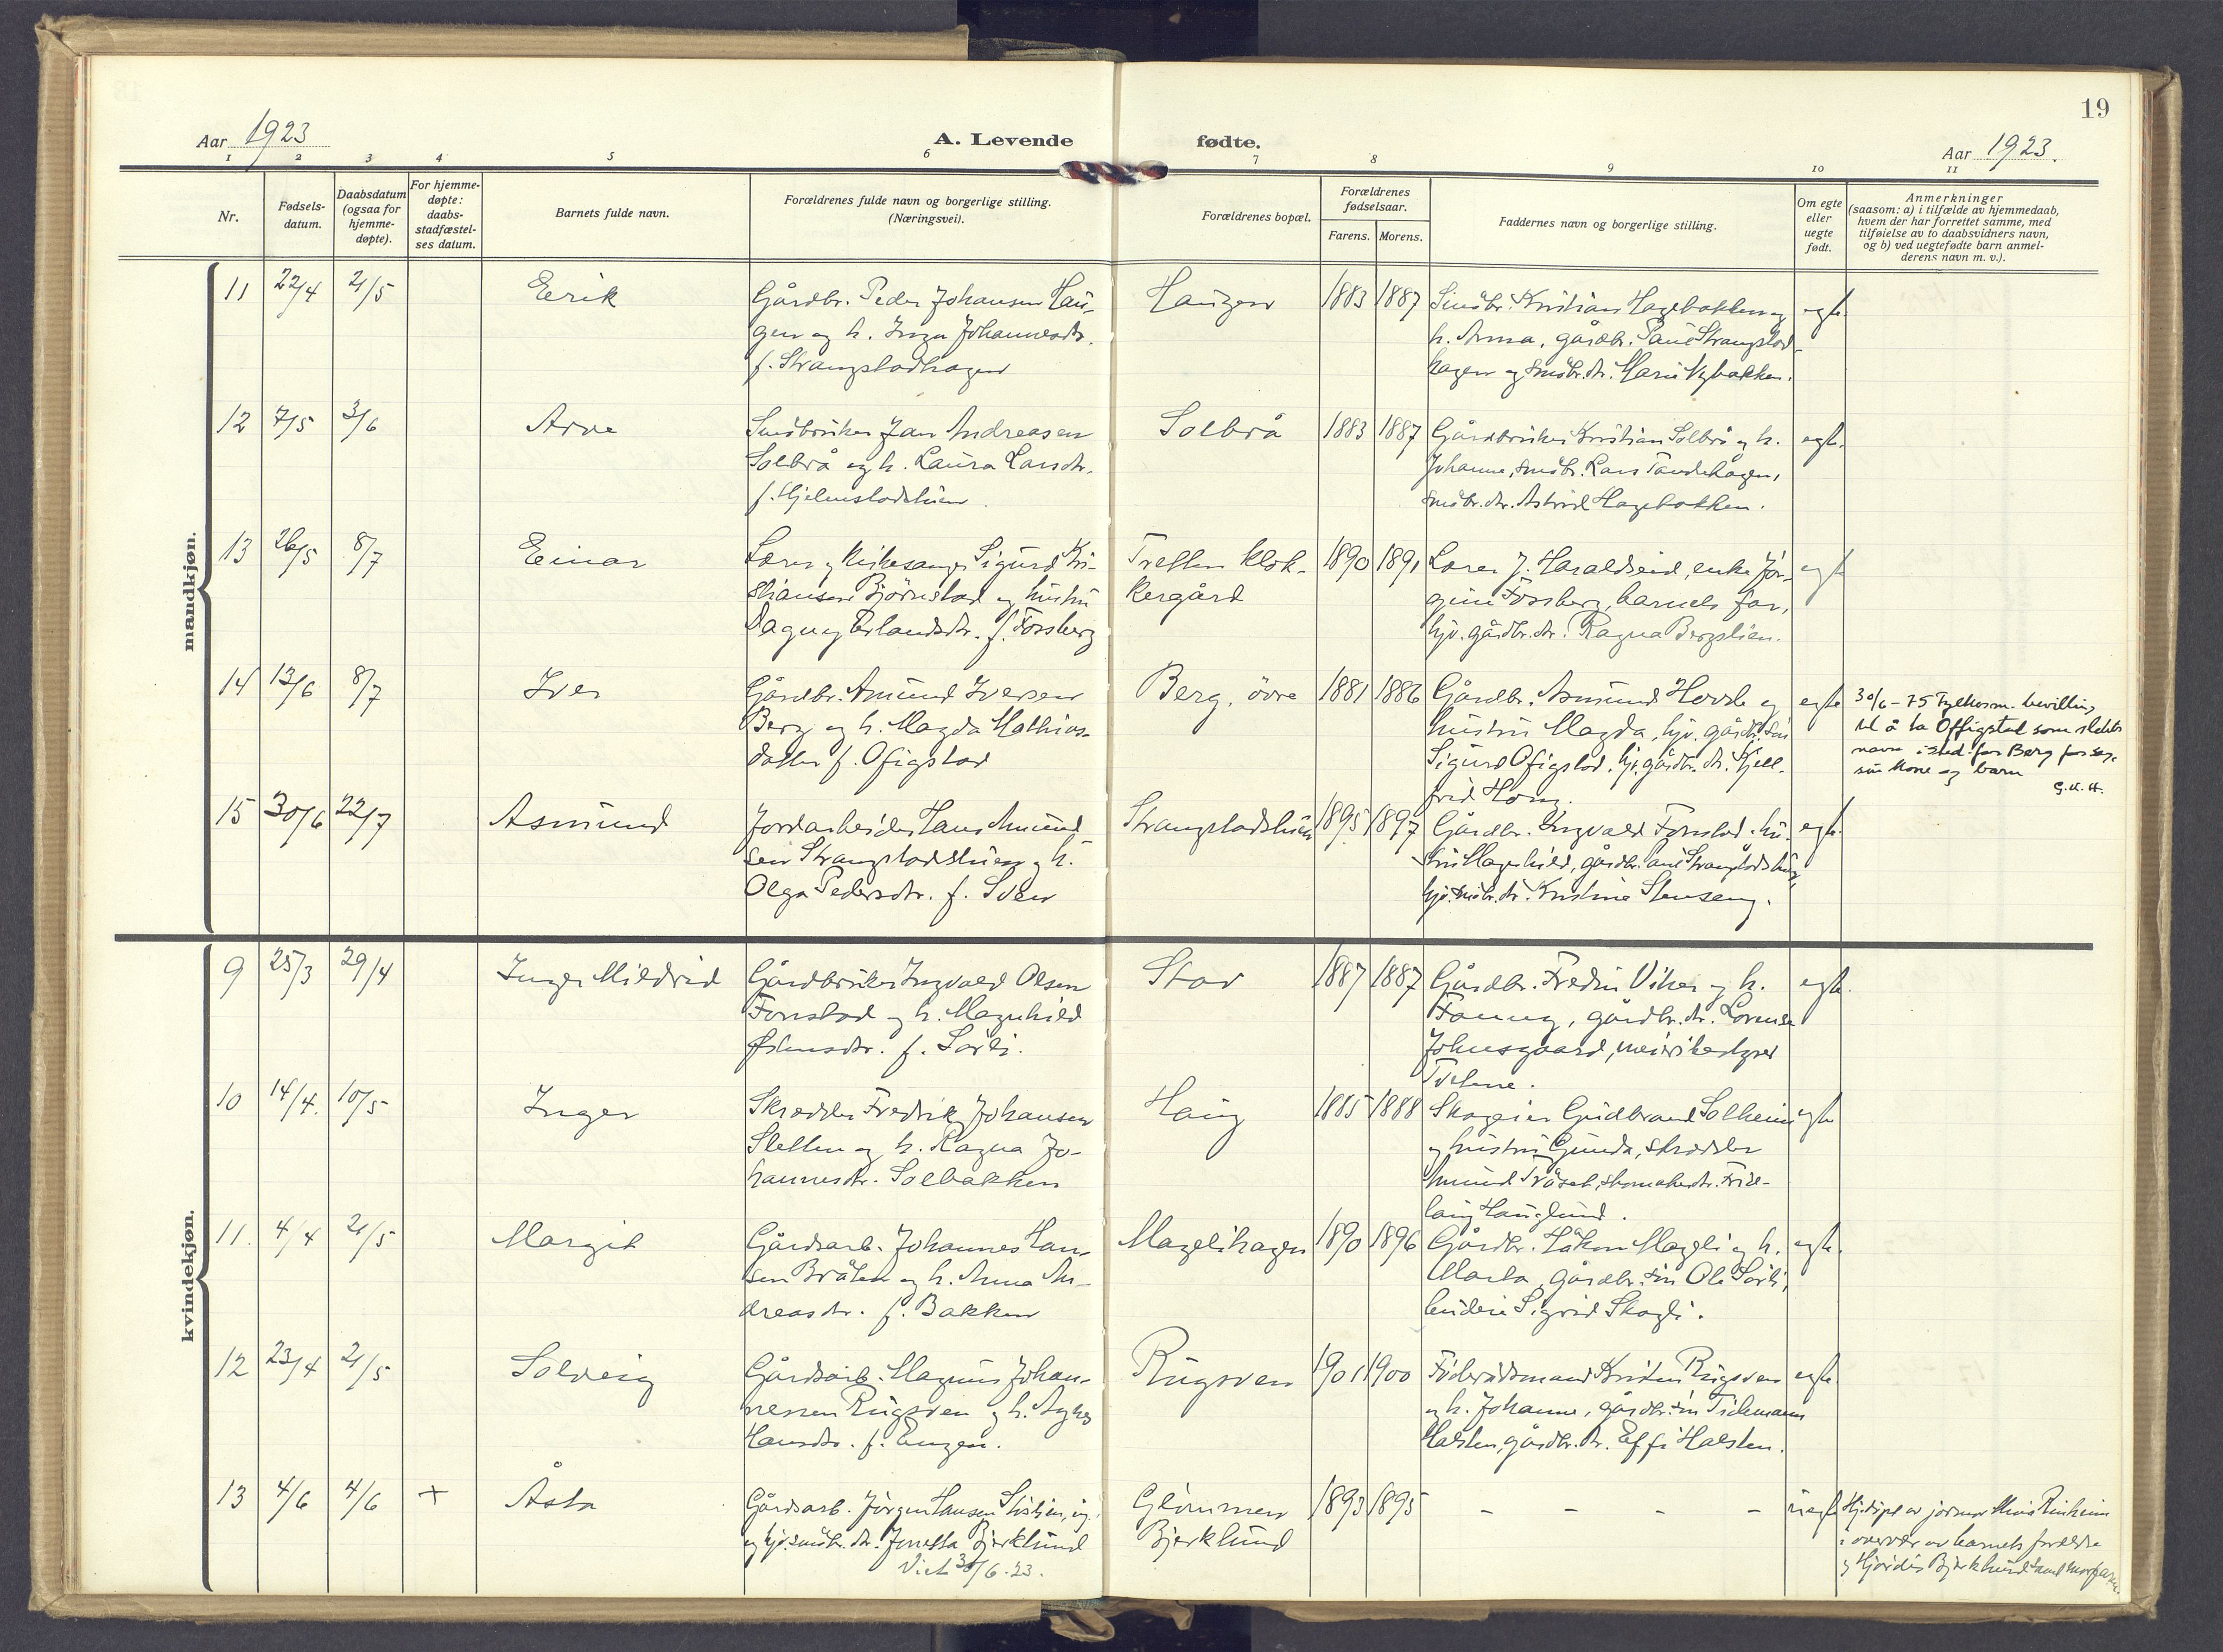 19
Aar 1923
A. Levende fødte.
Aar 1923.
1 2 3 4 5 6 7 8 9 10 11
Nr.
Fødsels-
datum.
Daabsdatum
(ogsaa for
hjemme-
døpte).
For hjemme-
døpte:
daabs-
stadfæstel-
ses datum.
Barnets fulde navn.
Forældrenes fulde navn og borgerlige stilling.
(Næringsvei).
Forældrenes bopæl.
Forældrenes
fødselsaar.
Farens. Morens.
Faddernes navn og borgerlige stilling.
Om egte
eller
uegte
født.
Anmerkninger
(saasom: a) i tilfælde av hjemmedaab,
hvem der har forrettet samme, med
tilføielse av to daabsvidners navn,
og b) ved uegtefødte barn anmel-
derens navn m. v.).
mandkjøn.
11 22/4 21/5 Eerik
Gårdbr. Peder Johansen Hau-
gen og h. Inga Johannesdtr.
f. Strangstadhagen
Haugen 1883 1887
Småbr. Kristian Hagebakken og
h. Anna, gårdbr. Paul Strangstad-
hagen og småbr.dtr. Marie Nybakken.
egte.
12 7/5 3/6 Arve
Småbruker Jan Andreasen
Solbrå og h. Laura Larsdtr.
f. Hjelmstadstuen.
Solbrå 1883 1887
Gårdbruker Kristian Solbrå og h.
Johanne, småbr. Lars Tandehagen,
småbr.dtr. Astrid Hagebakken.
egte.
13 26/5 8/7 Einar
Lærer og kirkesanger Sigurd Kri-
stiansen Bjørnstad og hustru
Dagny Erlandsdtr. f. Forsberg
Tretten klok-
kergård
1890 1891
Lærer J. Haraldseid, enke Jør-
gine Forsberg, barnets far,
hjv. gårdbr.dtr. Ragna Bergslien.
egte
14 13/6 8/7 Iver
Gårdbr. Amund Iversen
Berg og h. Magda Mathias-
datter f. Ofigstad
Berg, øvre 1881 1886
Gårdbr. Asmund Hovde og
hustru Magda, hjv. gårdbr.søn
Sigurd Ofigstad, hjv. gårdbr.dtr. Kjell-
frid Hong.
egte
30/6-75 Fylkesm. bevilling
til å ta Offigstad som slekts
navn isted for Berg for seg,
sin kone og barn
G.K.H.
15 30/6 22/7 Asmund
Jordarbeider Hans Amund
sen Strangstadstuen og h.
Olga Pedersdtr. f. Sven
Strangstadstuen 1895 1897
Gårdbr. Ingvald Fonstad, hu-
stru Magnhild, gårdbr. Strangstadstuen,
hjv. småbr.dtr. Kristine Stenseng.
egte.
kvindekjøn.
9 25/3 29/4 Inger Mildrid
Gårdbruker Ingvald Olsen
Fonstad og h. Magnhild
f. Sørli.
Stav 1887 1887
Gårdbr. Fredrik Viker og h.
Fanny, gårdbr.dtr. Lovise
Johnsgaard, meieribestyrer
egte.
10 14/4. 10/5 Inger
Skrædder Fredrik Johansen
Sletten og h. Ragna Jo-
hannesdtr. Solbakken
Haug 1885 1888
Skogeier Gudbrand Solheim
og hustru Gunda, skrædder
Amund skomakerdtr. Frid-
laug Hauglund.
egte
11. 4/4 21/5 Margit
Gårdsarb. Johannes Han-
sen Bråten og h. Anna An-
dreasdtr. f. Bakken
Magelihagen 1890 1896
Gårdbr. Håkon Mageli og h.
Marta, gårdbr.søn Ole Sørli,
budeie Sigrid Skogli.
egte.
12 23/4 21/5 Solveig
Gårdsarb. Magnus Johan-
nessen Rugsven og h. Agnes
Hansdtr. f. Engen.
Rugsven 1901 1900
Føderådsmand Kristen Rugsven
og h. Johanne, gårdbr.søn Tidemann
Halsten, gårdbr.dtr. Effi Halsten.
egte.
13 4/6 4/6 + Åsta
Gårdsarb. Jørgen Hansen Stislien, ug.
og hjv. småbr.dtr. Jonetta Bjerklund
Viet 30/6.23.
Glommen
Bjerklund
1893 1895
- - - -
uegte
Hj.døpt av jormor Rinheim
i overvær av barnets forældre
og Hjørdis Bjerklund samt morfaren.